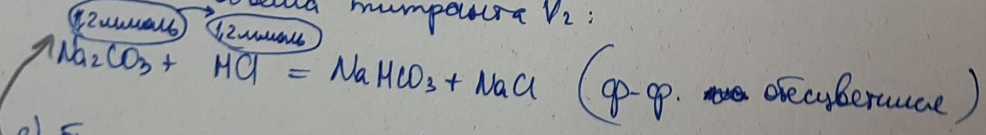 титранта V₂ :
1,2 ммоль 1,2 ммоль
Na₂CO₃ + HCl = NaHCO₃ + NaCl (ф-ф. обесцветшие)